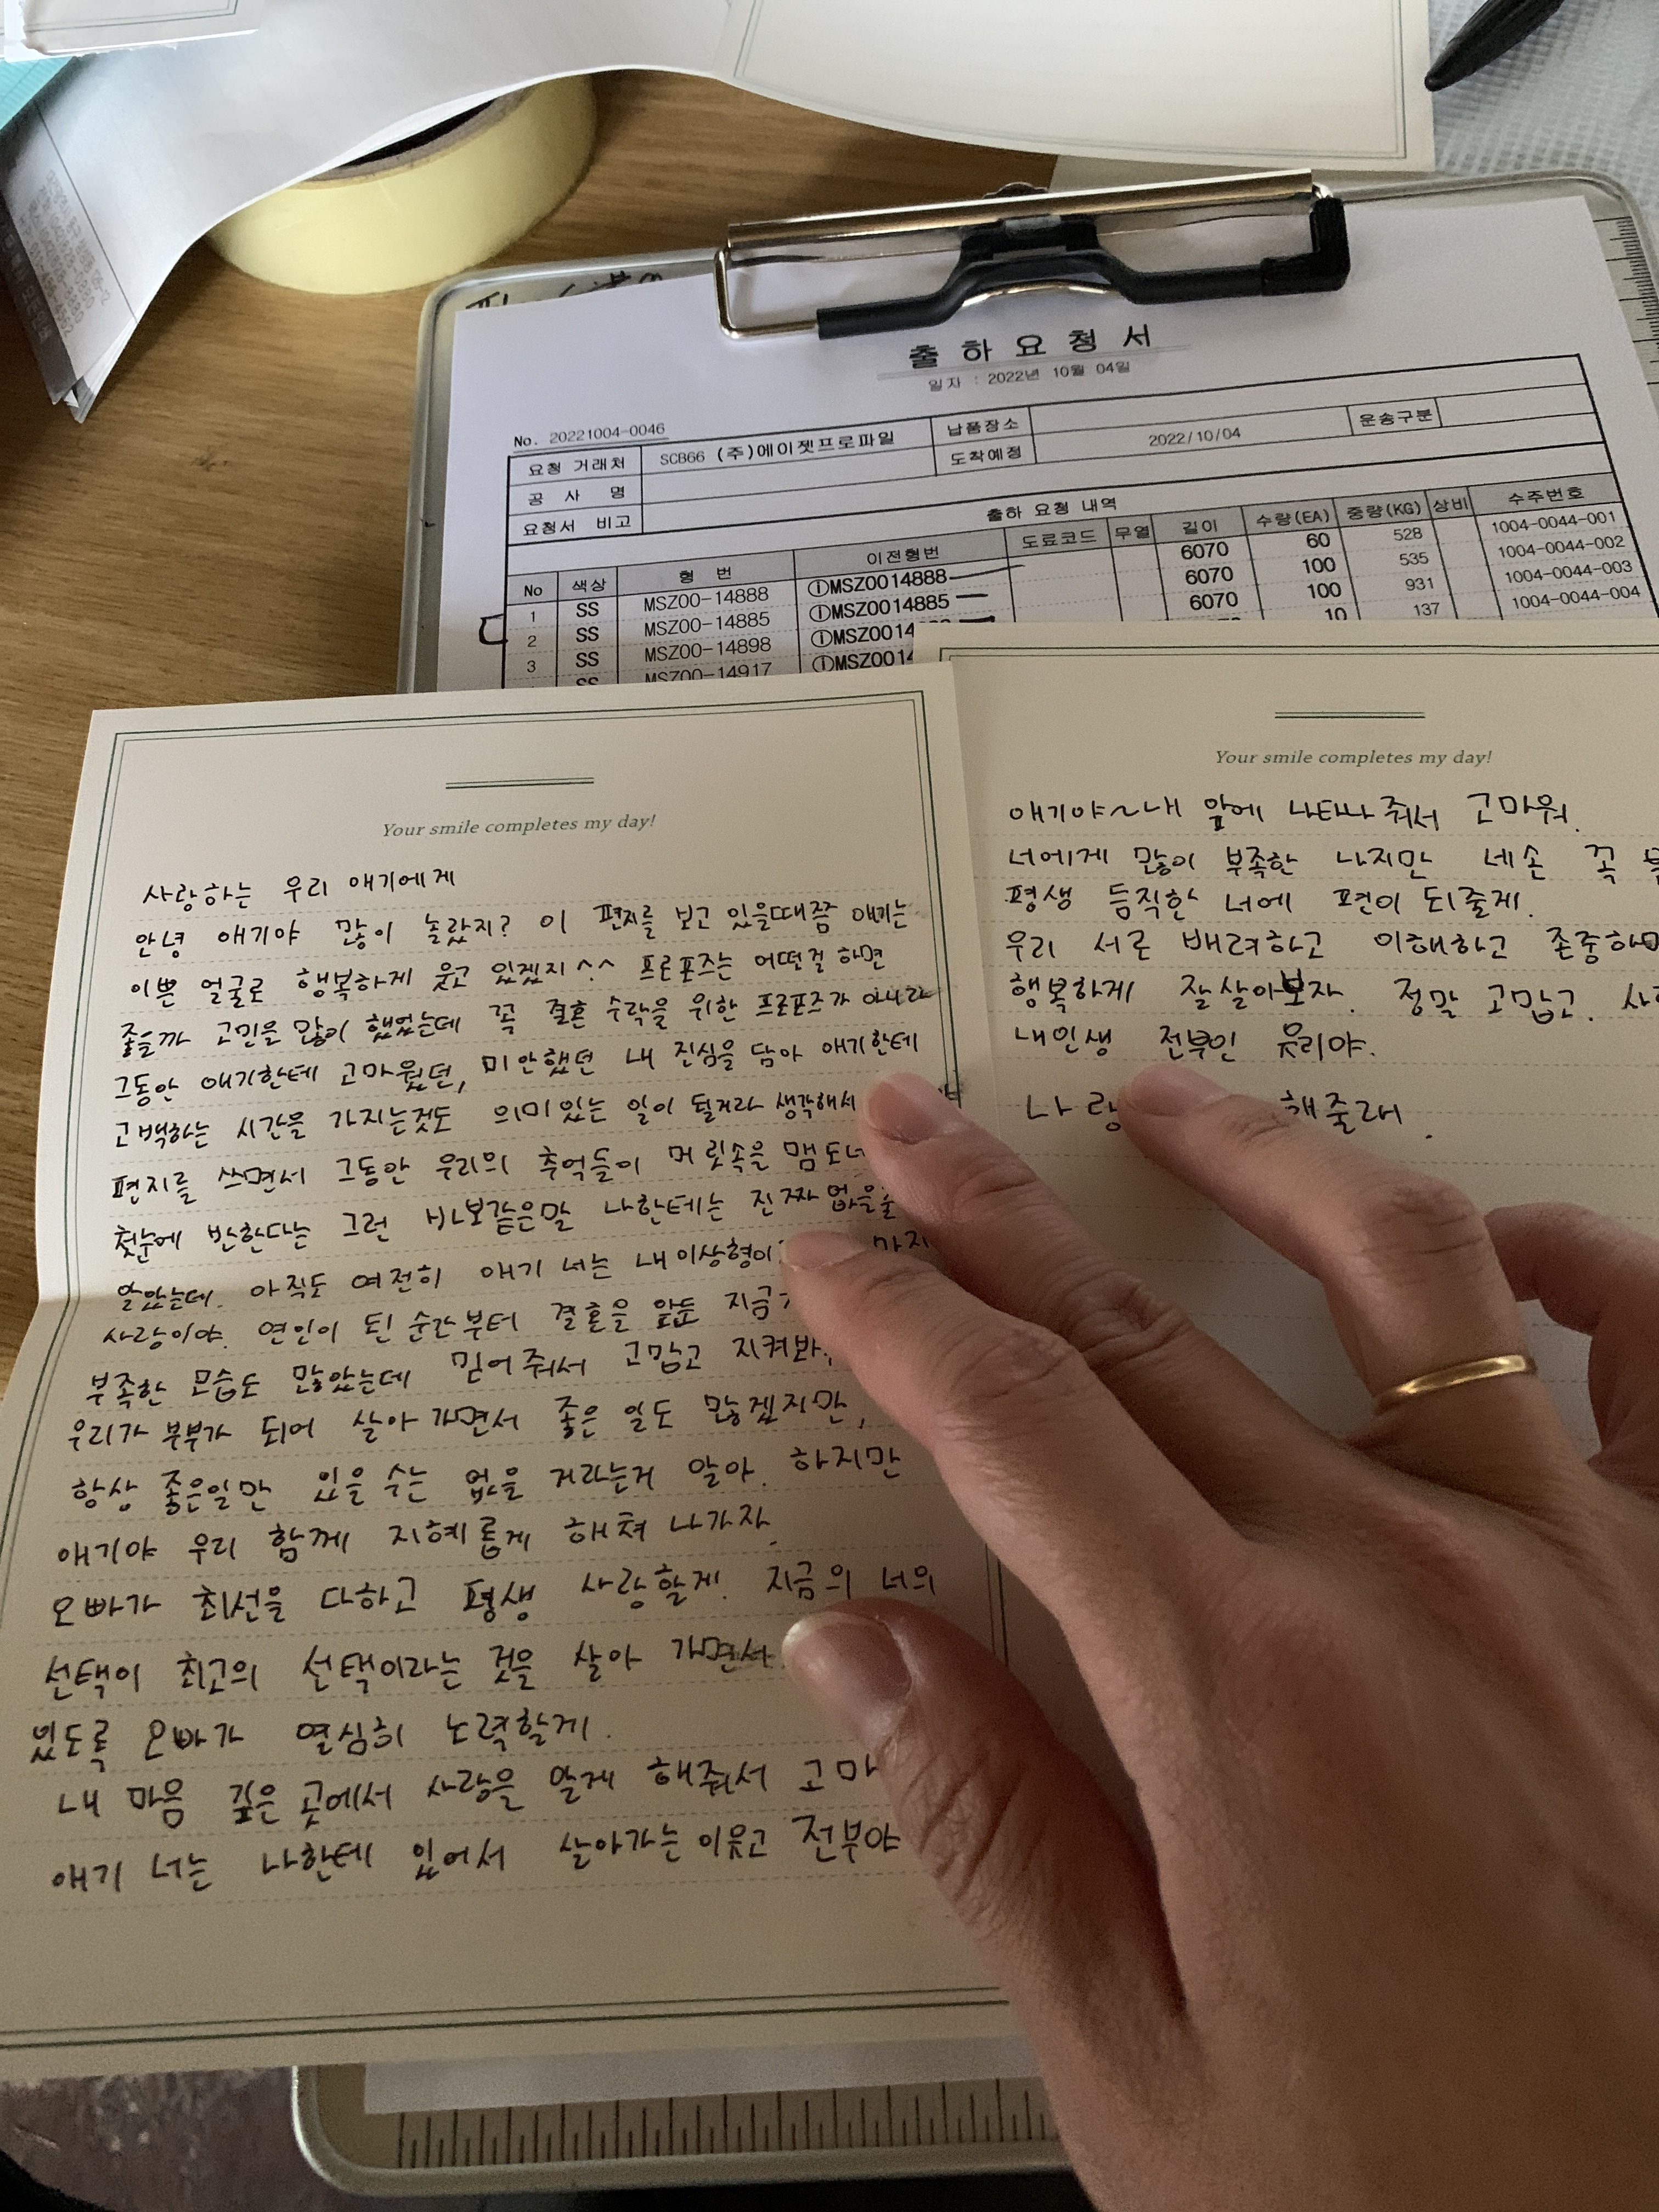 출 하 요 청 서
일자 : 2022년 10월 04일
No. 20221004-0046
요청 거래처 SCB66 (주)에이젯프로파일 납품장소 운송구분
공 사 명 도착예정 2022/10/04
요청서 비고
출하 요청 내역
No 색상 형 번 이전형번 도료코드 무열 길이 수량(EA) 중량(KG) 상비 수주번호
1 SS MSZ00-14888 ①MSZ0014888 6070 60 528 1004-0044-001
2 SS MSZ00-14885 ①MSZ0014885 6070 100 535 1004-0044-002
3 SS MSZ00-14898 ①MSZ0014 6070 100 931 1004-0044-003
SS MSZ00-14917 ①MSZ0014 10 137 1004-0044-004
Your smile completes my day!
사랑하는 우리 애기에게
안녕 애기야 많이 놀랐지? 이 편지를 보고 있을때쯤 애기는
이쁜 얼굴로 행복하게 웃고 있겠지^^ 프로포즈는 어떤걸 하면
좋을까 고민을 많이 했었는데 꼭 결혼 수락을 위한 프로포즈가 아니라
그동안 애기한테 고마웠던, 미안했던 내 진심을 담아 애기한테
고백하는 시간을 가지는것도 의미있는 일이 될거라 생각해서
편지를 쓰면서 그동안 우리의 추억들이 머릿속을 맴도네
첫눈에 반한다는 그런 바보같은말 나한테는 진짜 없을줄
알았는데. 아직도 여전히 애기 너는 내이상형이
사랑이야. 연인이 된 순간부터 결혼을 앞둔 지금
부족한 모습도 많았는데 믿어줘서 고맙고 지켜봐
우리가 부부가 되어 살아가면서 좋은 일도 많겠지만,
항상 좋은일만 있을 수는 없을 거라는거 알아. 하지만
애기야 우리 함께 지혜롭게 해쳐 나가자.
오빠가 최선을 다하고 평생 사랑할게. 지금의 너의
선택이 최고의 선택이라는 것을 살아 가면서
있도록 오빠가 열심히 노력할게.
내 마음 깊은 곳에서 사랑을 알게 해줘서 고마
애기 너는 나한테 있어서 살아가는 이유고 전부야
Your smile completes my day!
애기야~내 앞에 나타나 줘서 고마워.
너에게 많이 부족한 나지만 네손 꼭
평생 듬직한 너에 편이 되줄게.
우리 서로 배려하고 이해하고 존중하며
행복하게 잘살아보자. 정말 고맙고.
내인생 전부인 유리야.
나랑 해줄래.